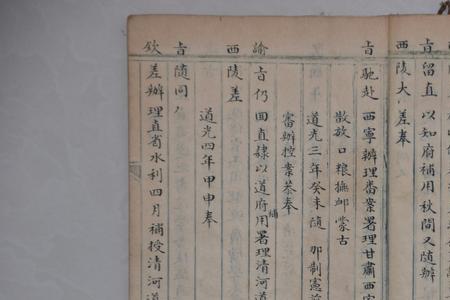 旨留直以知府補用秋間又随辦
西陵大差奉
旨馳赴西寧辦理番案署理甘肅西寧
散放口粮撫卹蒙古
道光三年癸未随 那制憲前
審辦控案恭奉
諭旨仍回直隸以道府補用署理清河道
西陵差
道光四年甲申奉
旨随同
欽差辦理直省水利四月補授清河道